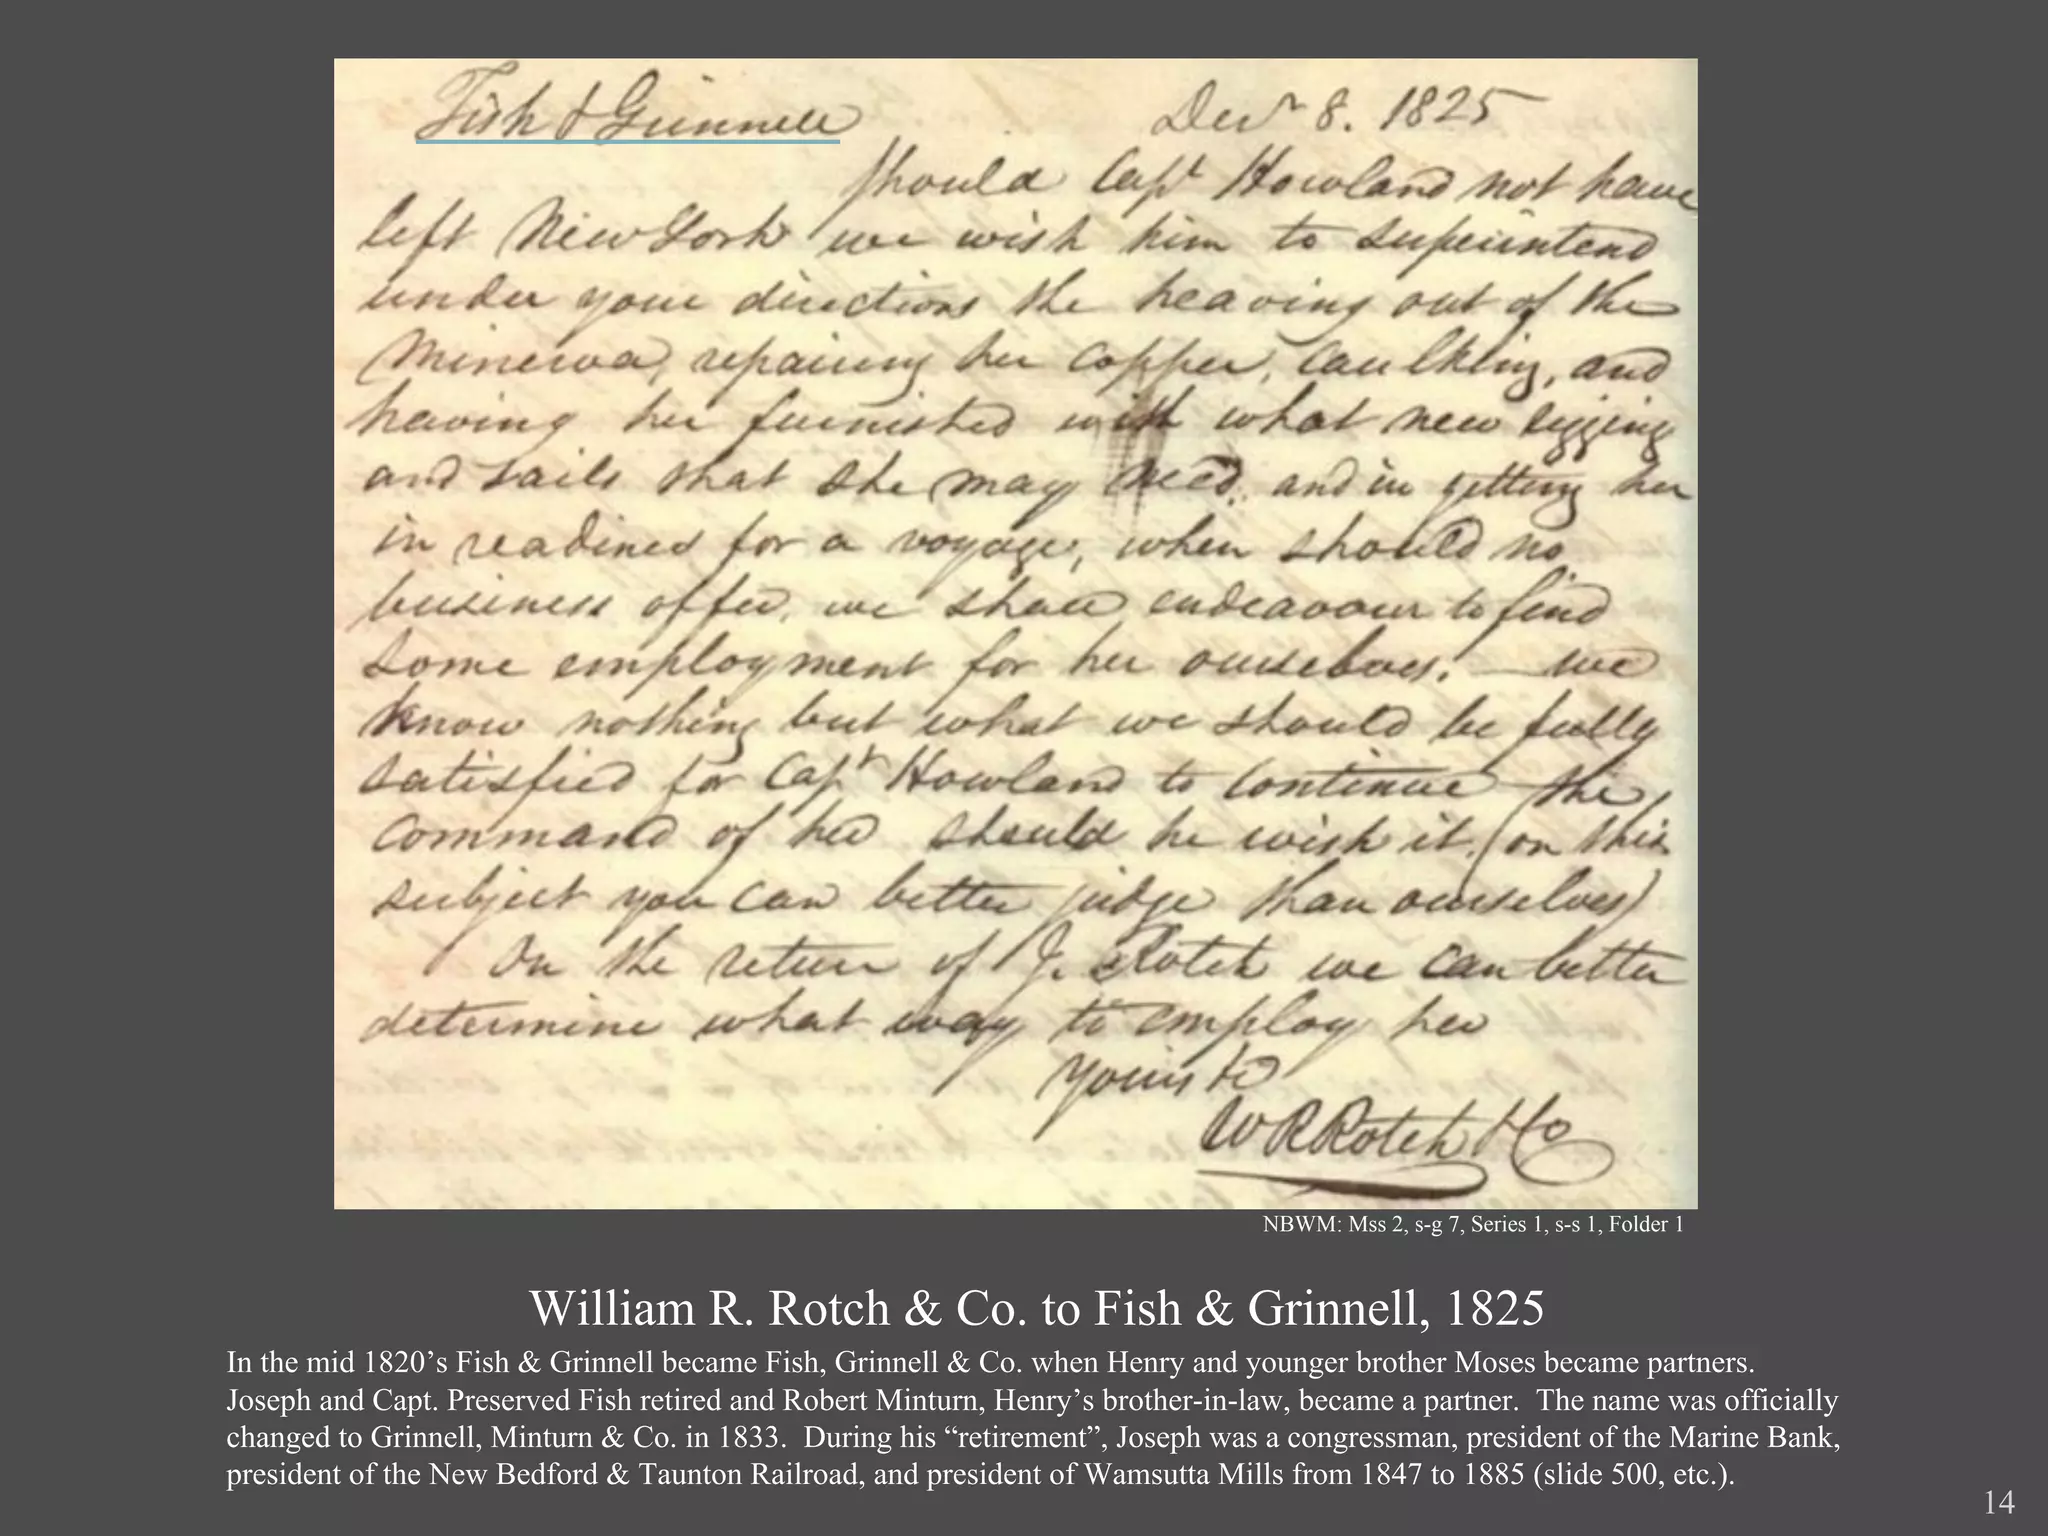 Fish & Grinnell Decr 8. 1825
should Capt Howland not have
left New York we wish him to superintend
under your directions the heaving out of the
Minerva, repairing her copper, caulking, and
having her furnished with what new rigging
and sails that she may need, and in getting her
in readiness for a voyage, when should no
business offer, we shall endeavour to find
some employment for her ourselves. — we
know nothing but what we should be fully
satisfied for Capt Howland to continue the
command of her should he wish it, (on this
subject you can better judge than ourselves)
On the return of J. Rotch we can better
determine what way to employ her
Yours &c
W R Rotch & Co
NBWM: Mss 2, s-g 7, Series 1, s-s 1, Folder 1
William R. Rotch & Co. to Fish & Grinnell, 1825
In the mid 1820’s Fish & Grinnell became Fish, Grinnell & Co. when Henry and younger brother Moses became partners.
Joseph and Capt. Preserved Fish retired and Robert Minturn, Henry’s brother-in-law, became a partner. The name was officially
changed to Grinnell, Minturn & Co. in 1833. During his “retirement”, Joseph was a congressman, president of the Marine Bank,
president of the New Bedford & Taunton Railroad, and president of Wamsutta Mills from 1847 to 1885 (slide 500, etc.).
14